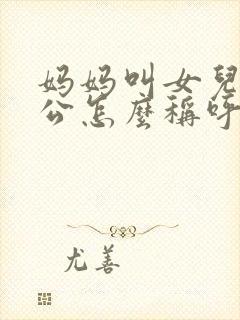 妈妈叫女兒
公怎麼稱呼
尤善